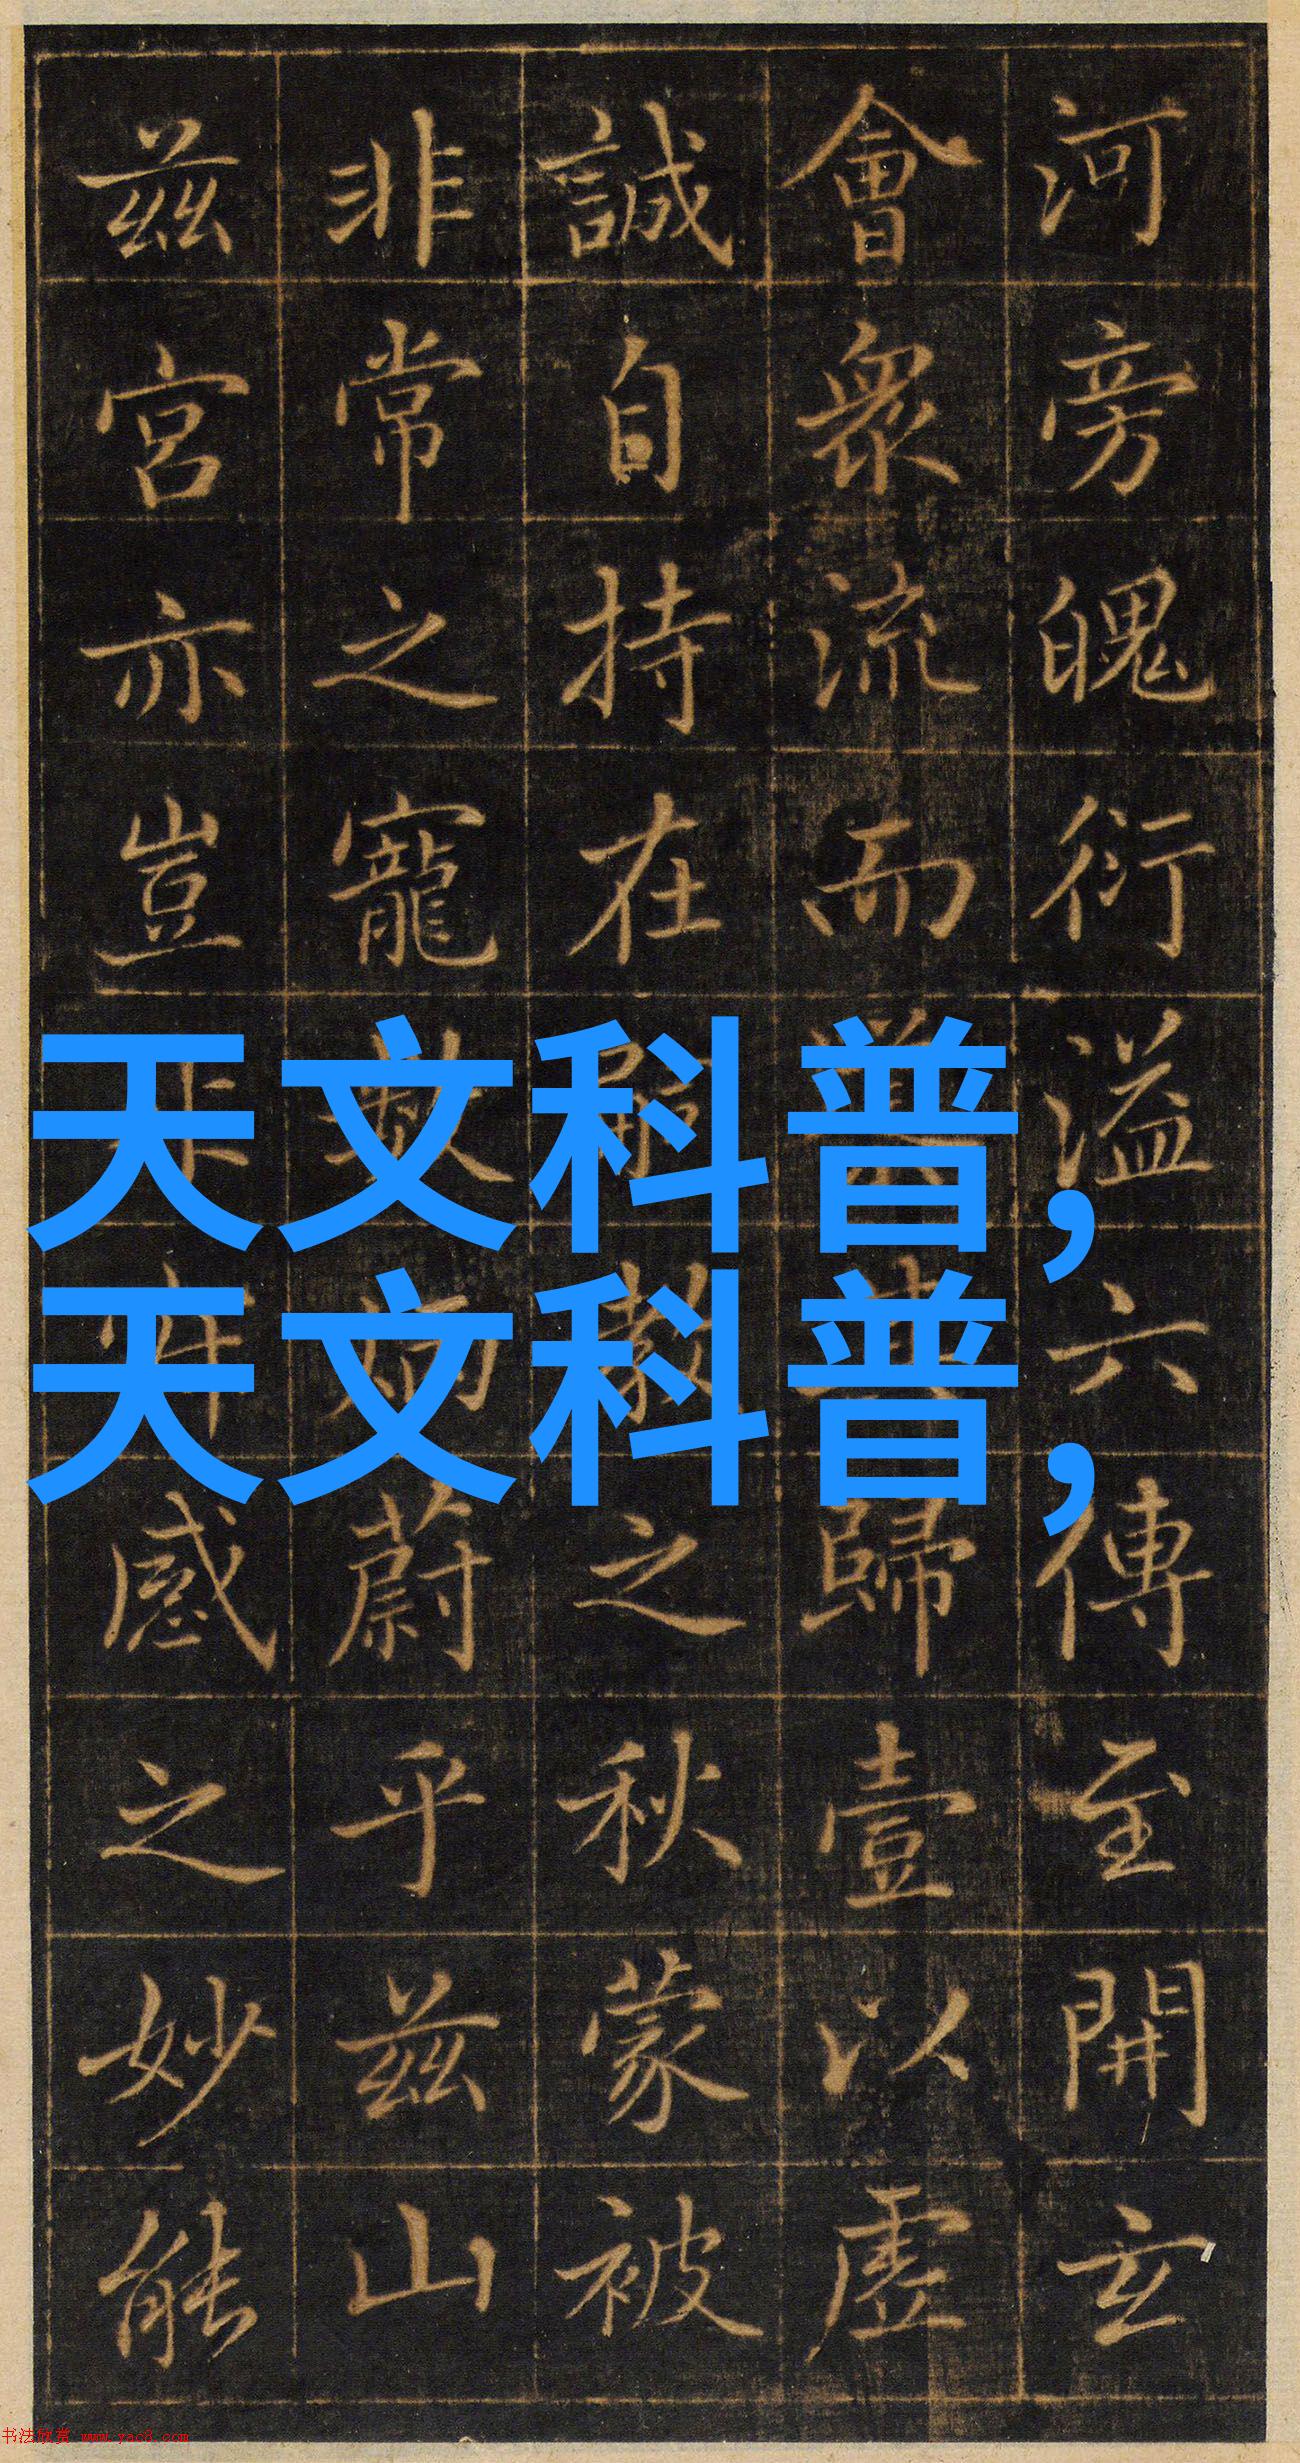 河旁魄衍溢六傳至開玄
會衆流而歸壹以虛
誠自持在之秋蒙被
非常之寵蔚乎茲山
茲宮亦豈感之妙能
天文科普,
天文科普,
书法欣赏 www.yac8.com